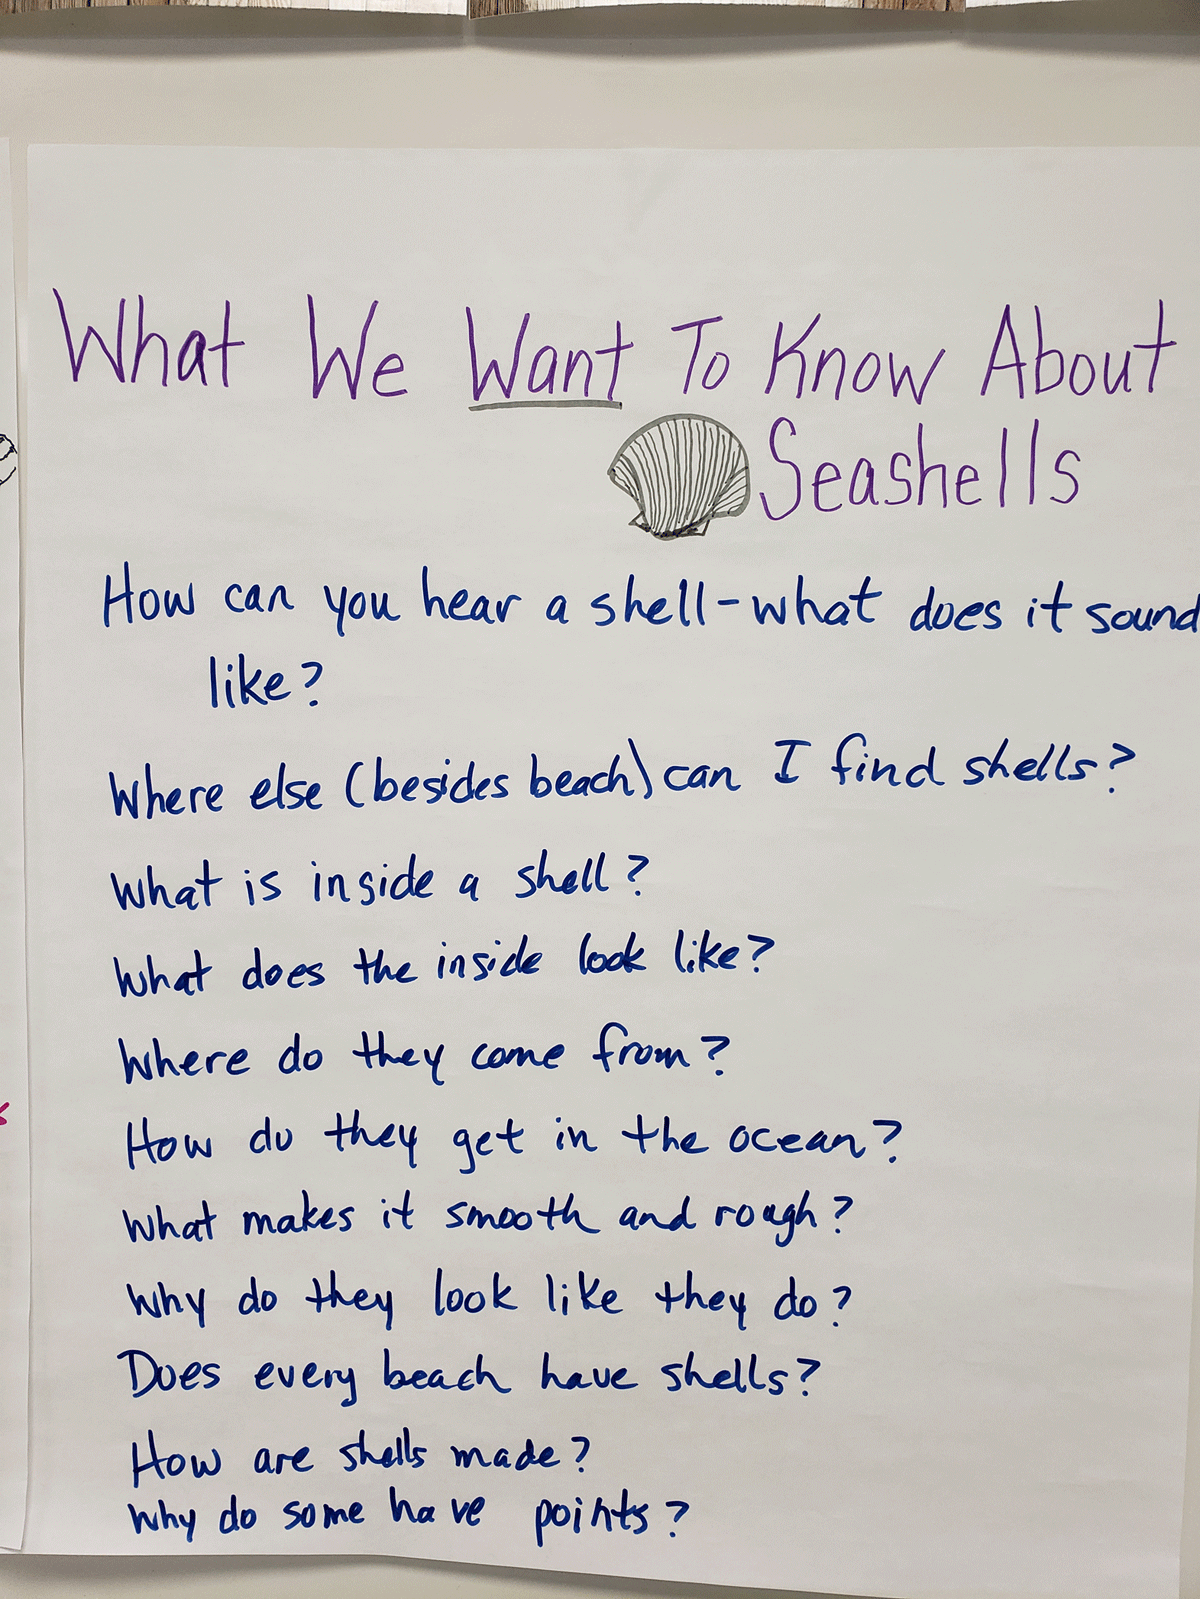 What We Want To Know About
Seashells
How can you hear a shell-what does it sound
like?
Where else (besides beach) can I find shells?
What is inside a shell?
What does the inside look like?
Where do they come from?
How do they get in the ocean?
What makes it smooth and rough?
Why do they look like they do?
Does every beach have shells?
How are shells made?
Why do some have points?